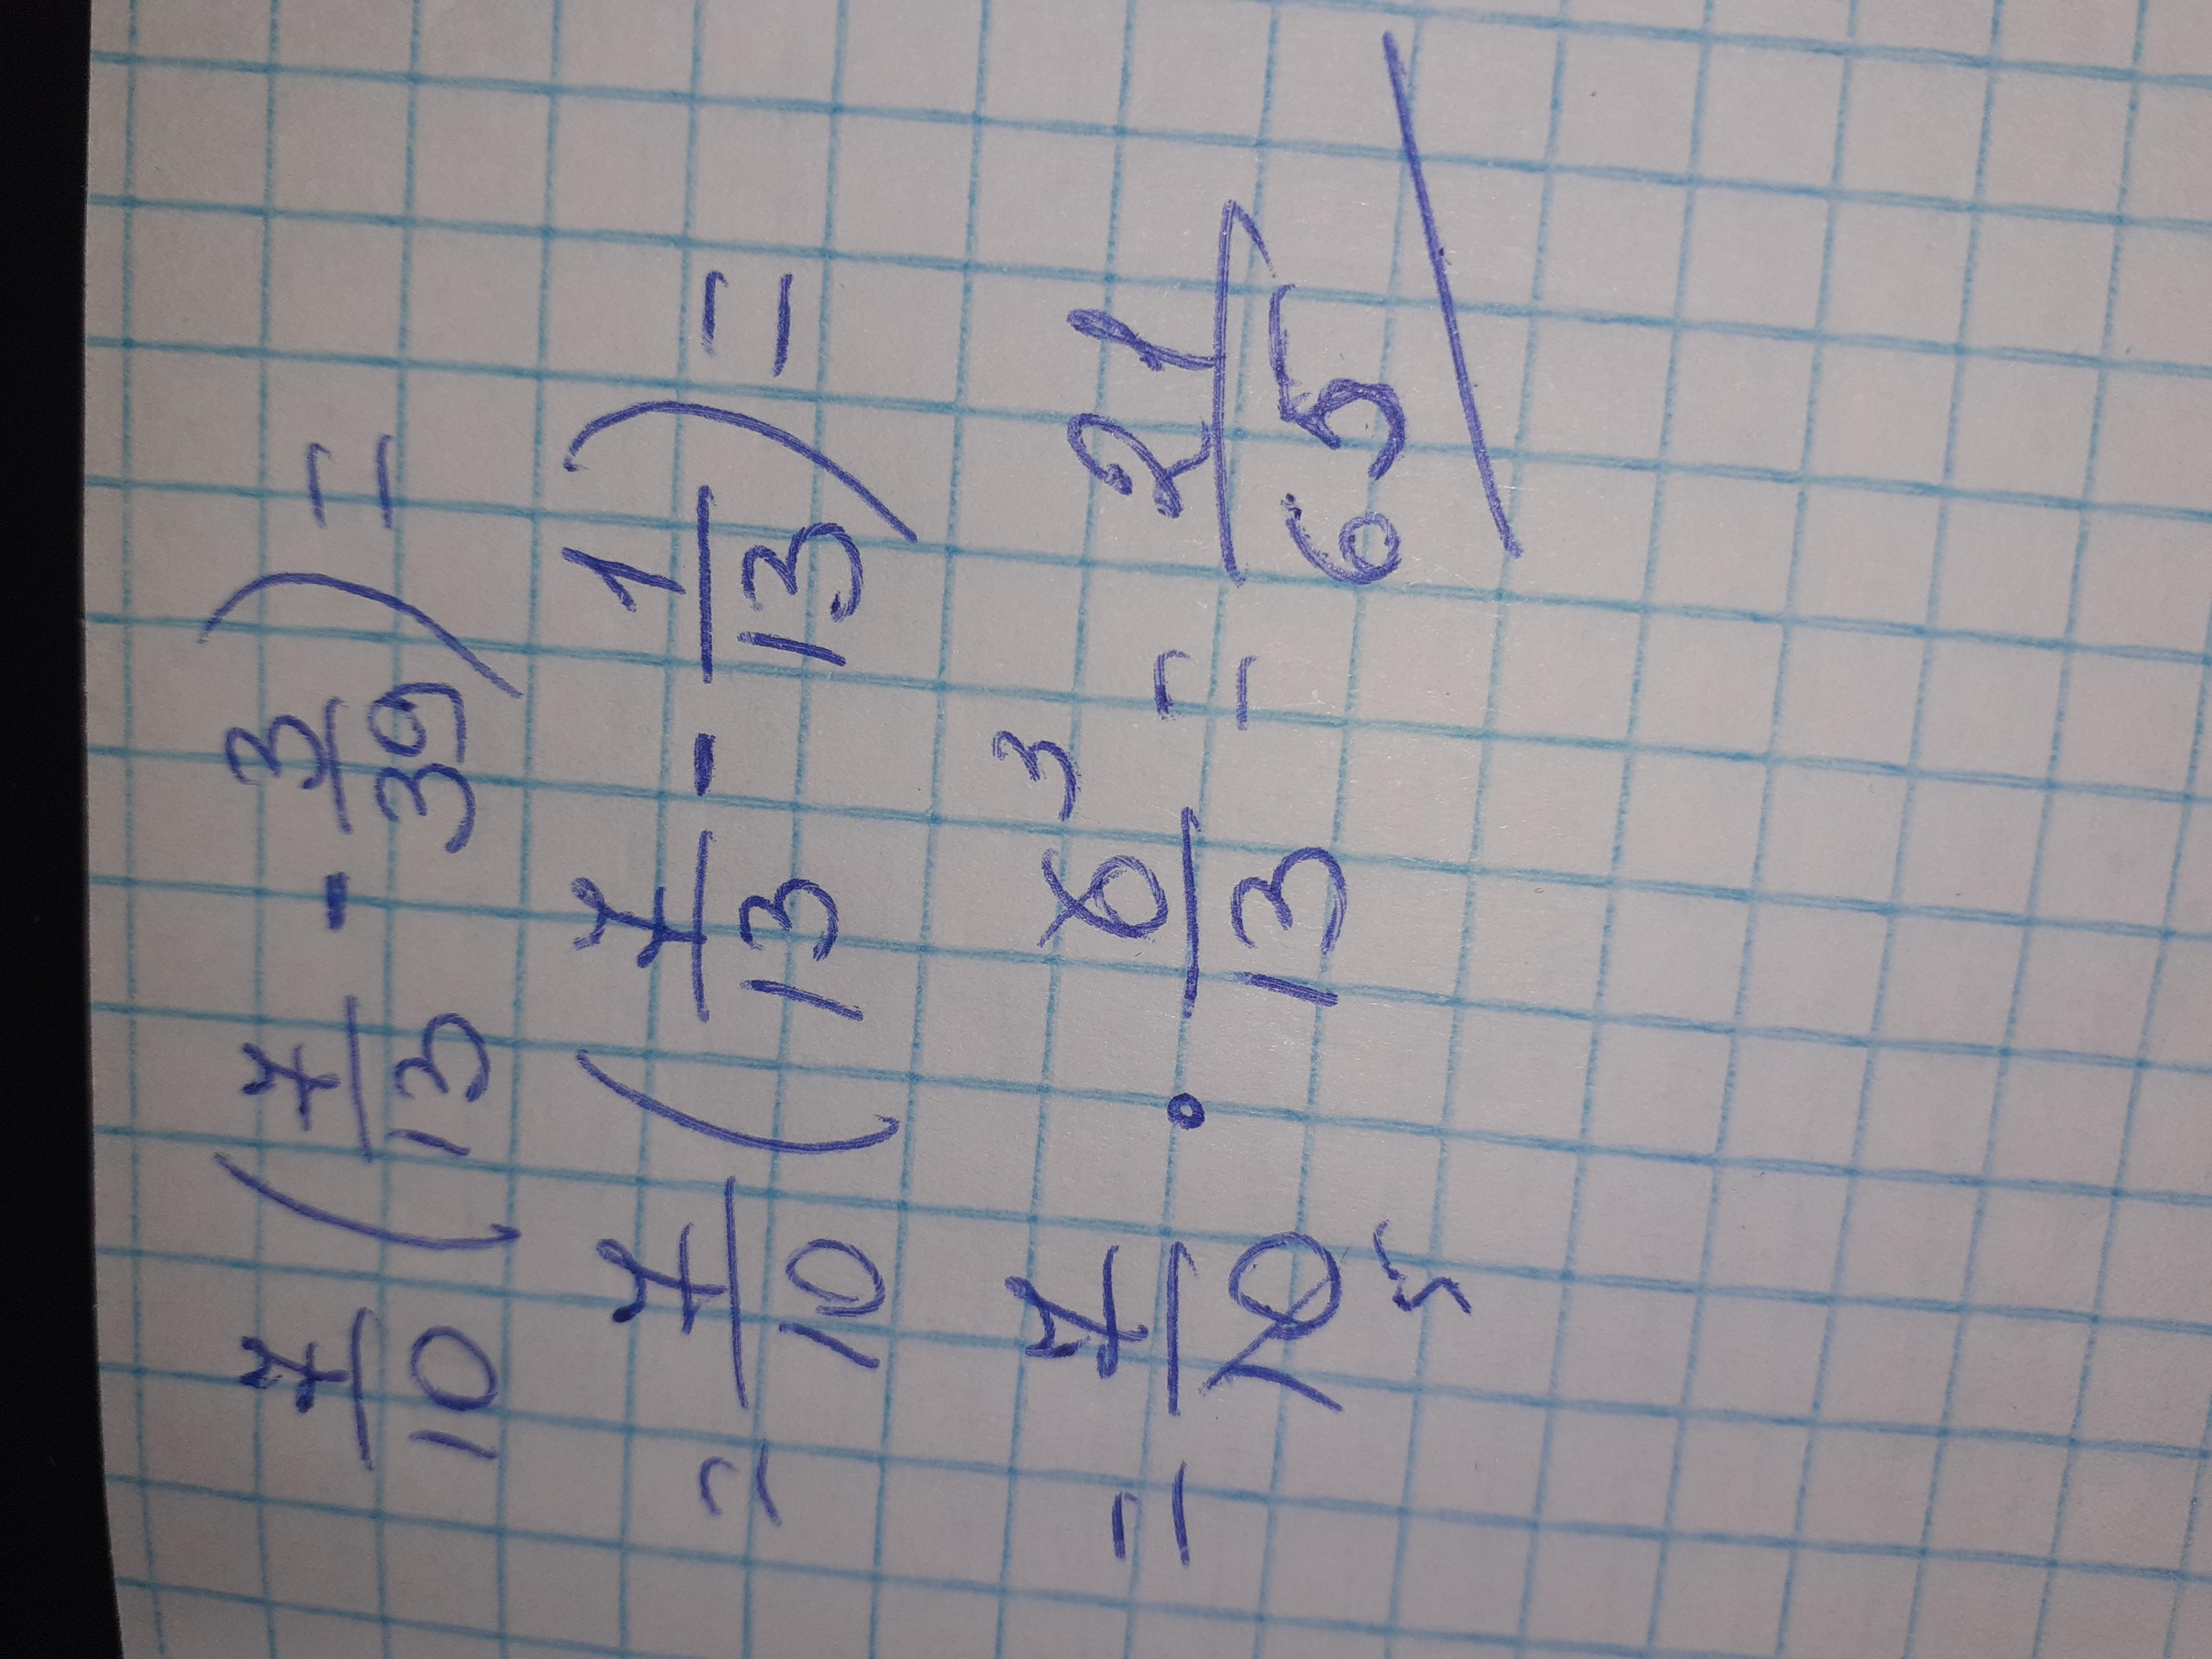 7/10 (7/13 - 3/39) =
= 7/10 (7/13 - 1/13) =
= 7/10 5 · 6 3/13 = 21/65